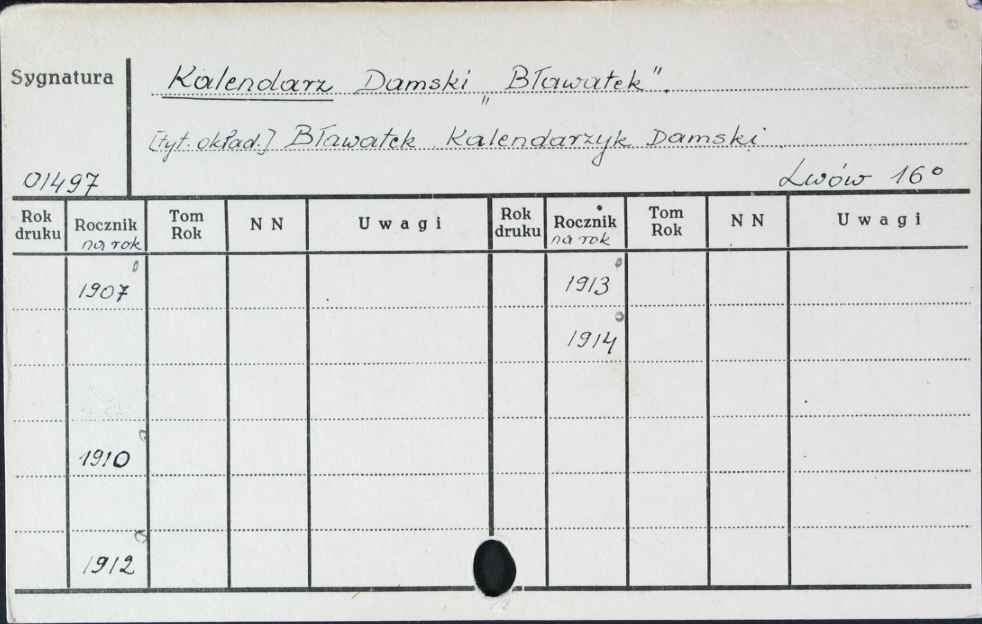 Sygnatura
Kalendarz Damski „Bławatek".
[tyt. okład.] Bławatek Kalendarzyk Damski
01497
Lwów 16°
Rok druku Rocznik na rok Tom Rok N N Uwagi Rok druku Rocznik na rok Tom Rok N N Uwagi
1907 1913
1914
1910
1912